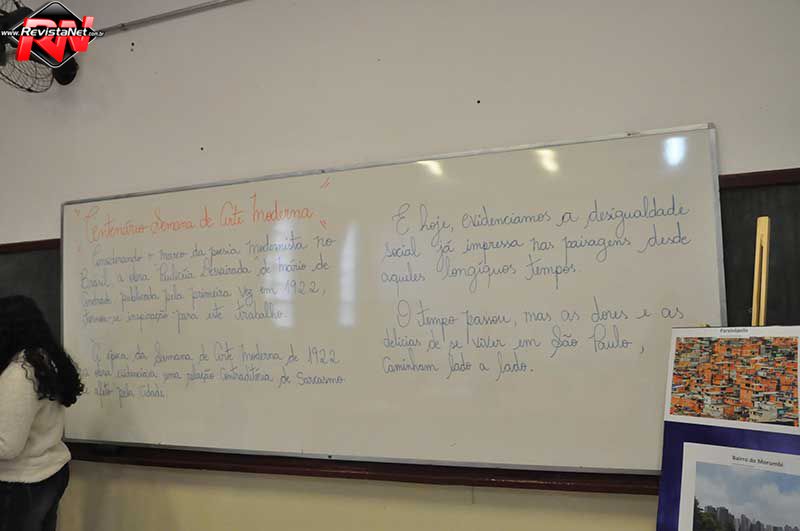 www.RevistaNet.com.br
RN
"Centenário Semana de Arte Moderna"
Considerando o marco da poesia modernista no
Brasil a obra "Paulicéia Desvairada" de Mário de
Andrade publicada pela primeira vez em 1922,
tornou-se inspiração para este trabalho.
À época da Semana de Arte Moderna de 1922
a obra evidencia uma relação contraditória de Sarcasmo
e afeto pela cidade.
E hoje, evidenciamos a desigualdade
social já impressa nas paisagens desde
aqueles longíquos tempos.
O Tempo passou, mas as dores e as
delícias de se viver em São Paulo,
Caminham lado a lado.
Paraisópolis
Bairro do Morumbi